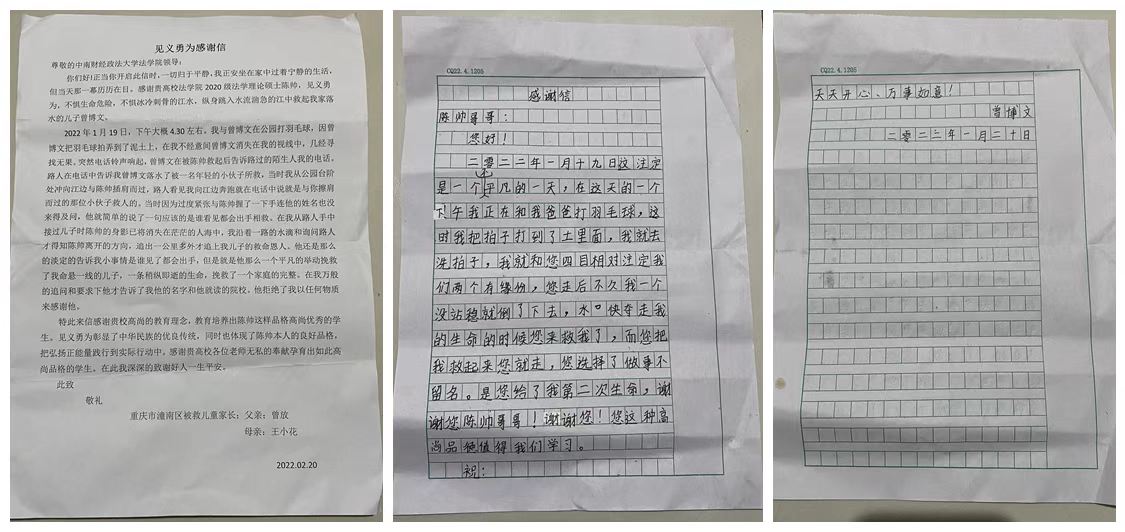 见义勇为感谢信
尊敬的中南财经政法大学法学院领导：
你们好!正当你开启此信时，一切归于平静，我正安坐在家中过着宁静的生活，
但当天那一幕历历在目。感谢贵高校法学院 2020 级法学理论硕士陈帅，见义勇
为，不惧生命危险，不惧冰冷刺骨的江水，纵身跳入水流湍急的江中救起我家落
水的儿子曾博文。
2022 年 1 月 19 日，下午大概 4.30 左右。我与曾博文在公园打羽毛球，因曾
博文把羽毛球拍弄到了泥土上，在我不经意间曾博文消失在我的视线中，几经寻
找无果。突然电话铃声响起，曾博文在被陈帅救起后告诉路过的陌生人我的电话。
路人在电话中告诉我曾博文落水了被一名年轻的小伙子所救，当时我从公园台阶
处冲向江边与陈帅插肩而过，路人看见我向江边奔跑就在电话中说就是与你擦肩
而过的那位小伙子救人的。当时因为过度紧张与陈帅握了一下手连他的姓名也没
来得及问，他就简单的说了一句应该的是谁看见都会出手相救。在我从路人手中
接过儿子时陈帅的身影已将消失在茫茫的人海中，我沿着一路的水滴和询问路人
才得知陈帅离开的方向，追出一公里多外才追上我儿子的救命恩人。他还是那么
的淡定的告诉我小事情是谁见了都会出手，但是就是他那么一个平凡的举动挽救
了我命悬一线的儿子，一条稍纵即逝的生命，挽救了一个家庭的完整。在我万般
的追问和要求下他才告诉了我他的名字和他就读的院校。他拒绝了我以任何物质
来感谢他。
特此来信感谢贵校高尚的教育理念，教育培养出陈帅这样品格高尚优秀的学
生。见义勇为彰显了中华民族的优良传统，同时也体现了陈帅本人的良好品格。
把弘扬正能量践行到实际行动中。感谢贵高校各位老师无私的奉献孕育出如此高
尚品格的学生。在此我深深的致谢好人一生平安。
此致
敬礼
重庆市潼南区被救儿童家长：父亲：曾放
母亲：王小花
2022.02.20
CQ22.4.1205
感谢信
陈帅哥哥：
您好！
二零二二年一月十九日这注定
是一个不平凡的一天，在这天的一个
下午我正在和我爸爸打羽毛球，这
时我把拍子打到了土里面，我就去
洗拍子，我就和您四目相对注定我
们两个有缘份，您走后不久我一个
没站稳就倒了下去，水中快夺走我
的生命的时候您来救我了，而您把
我救起来您就走，您选择了做事不
留名。是您给了我第二次生命，谢
谢您陈帅哥哥！谢谢您！您这种高
尚品德值得我们学习。
祝：
CQ22.4.1205
天天开心、万事如意！
曾博文
二零二三年一月二十日